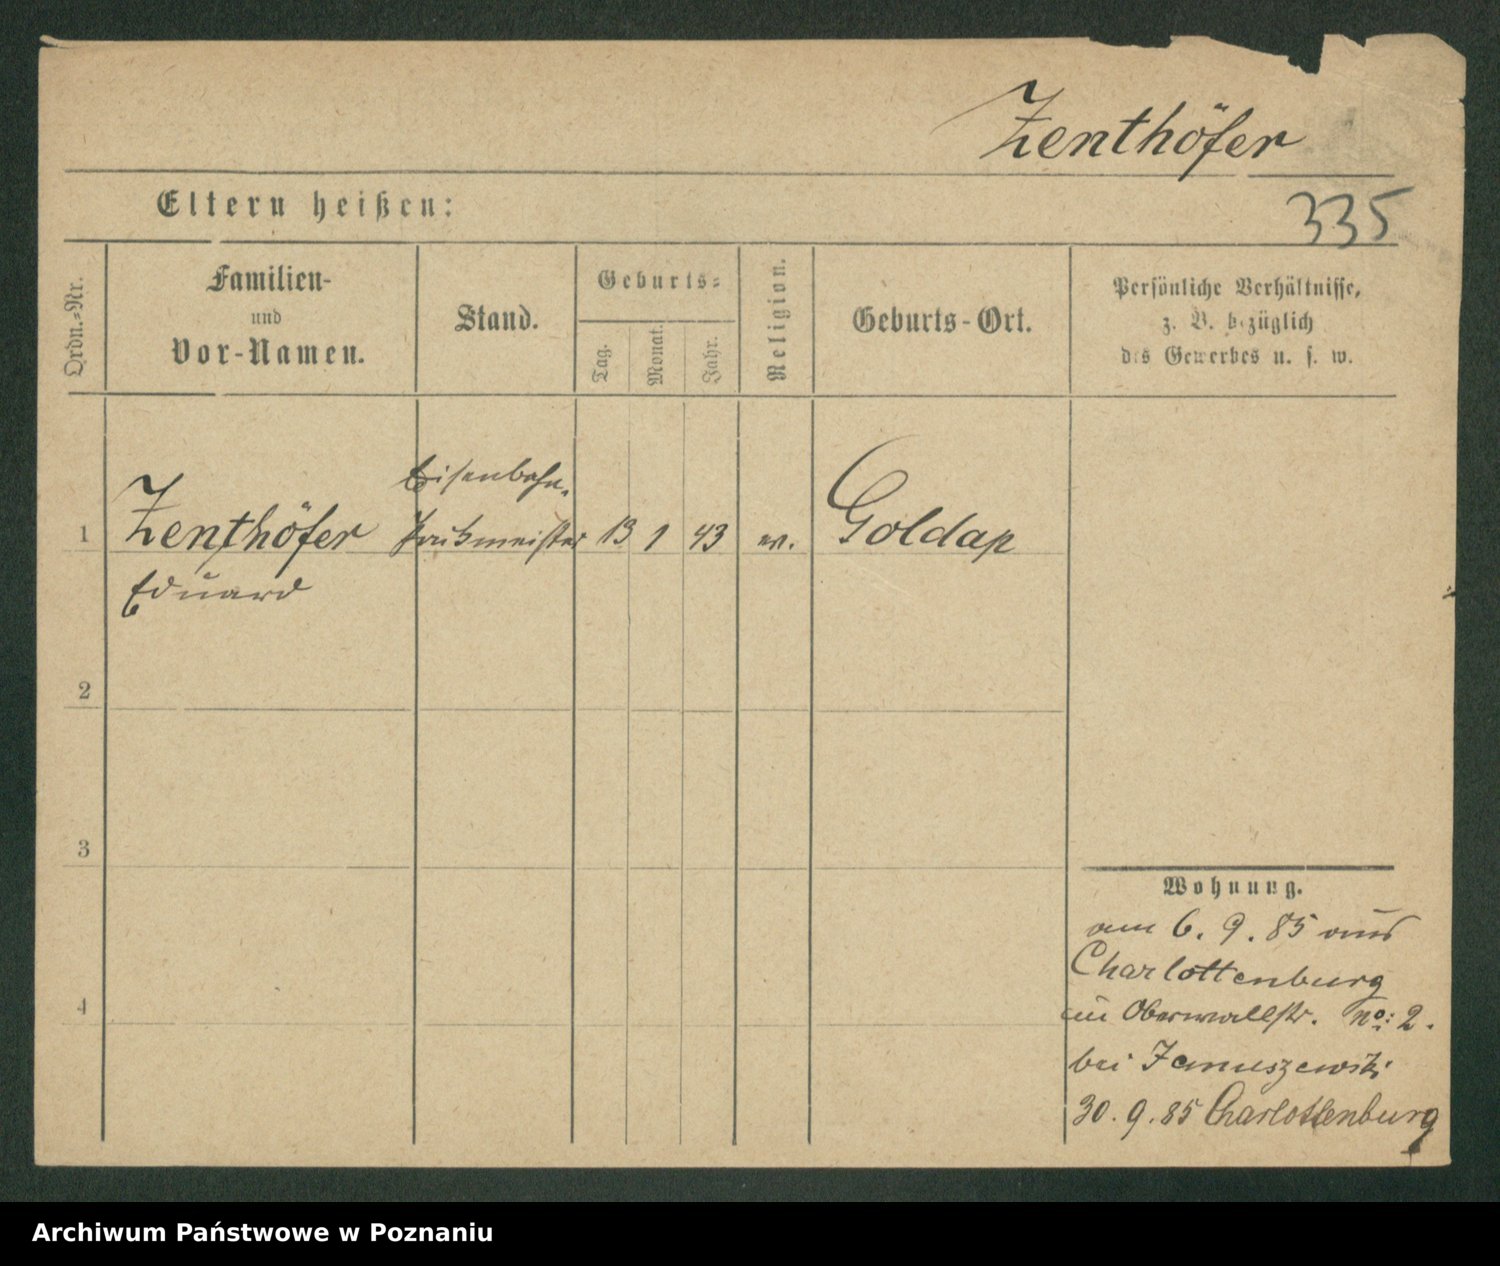 Zenthöfer
335
Eltern heißen:
Ordn.-Nr.
Familien-
und
Vor-Namen.
Stand.
Geburts-
Tag.
Monat.
Jahr.
Religion.
Geburts-Ort.
Persönliche Verhältnisse,
z. B. bezüglich
des Gewerbes u. s. w.
1
Zenthöfer
Eduard
Eisenbahn-
13 1 43 ev. Goldap
2
3
4
Wohnung.
am 6. 9. 85 aus
Charlottenburg
in Oberwallstr. No: 2.
bei Januszewski
30. 9. 85 Charlottenburg
Archiwum Państwowe w Poznaniu